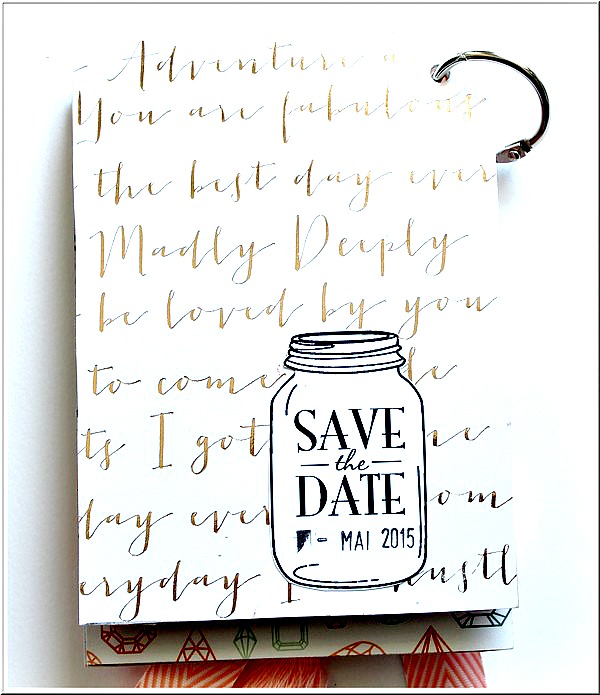 Adventure a
You are fabulous
the best day ever
Madly Deeply
be loved by you
to come
I got
day ever
SAVE
the
DATE
- MAI 2015